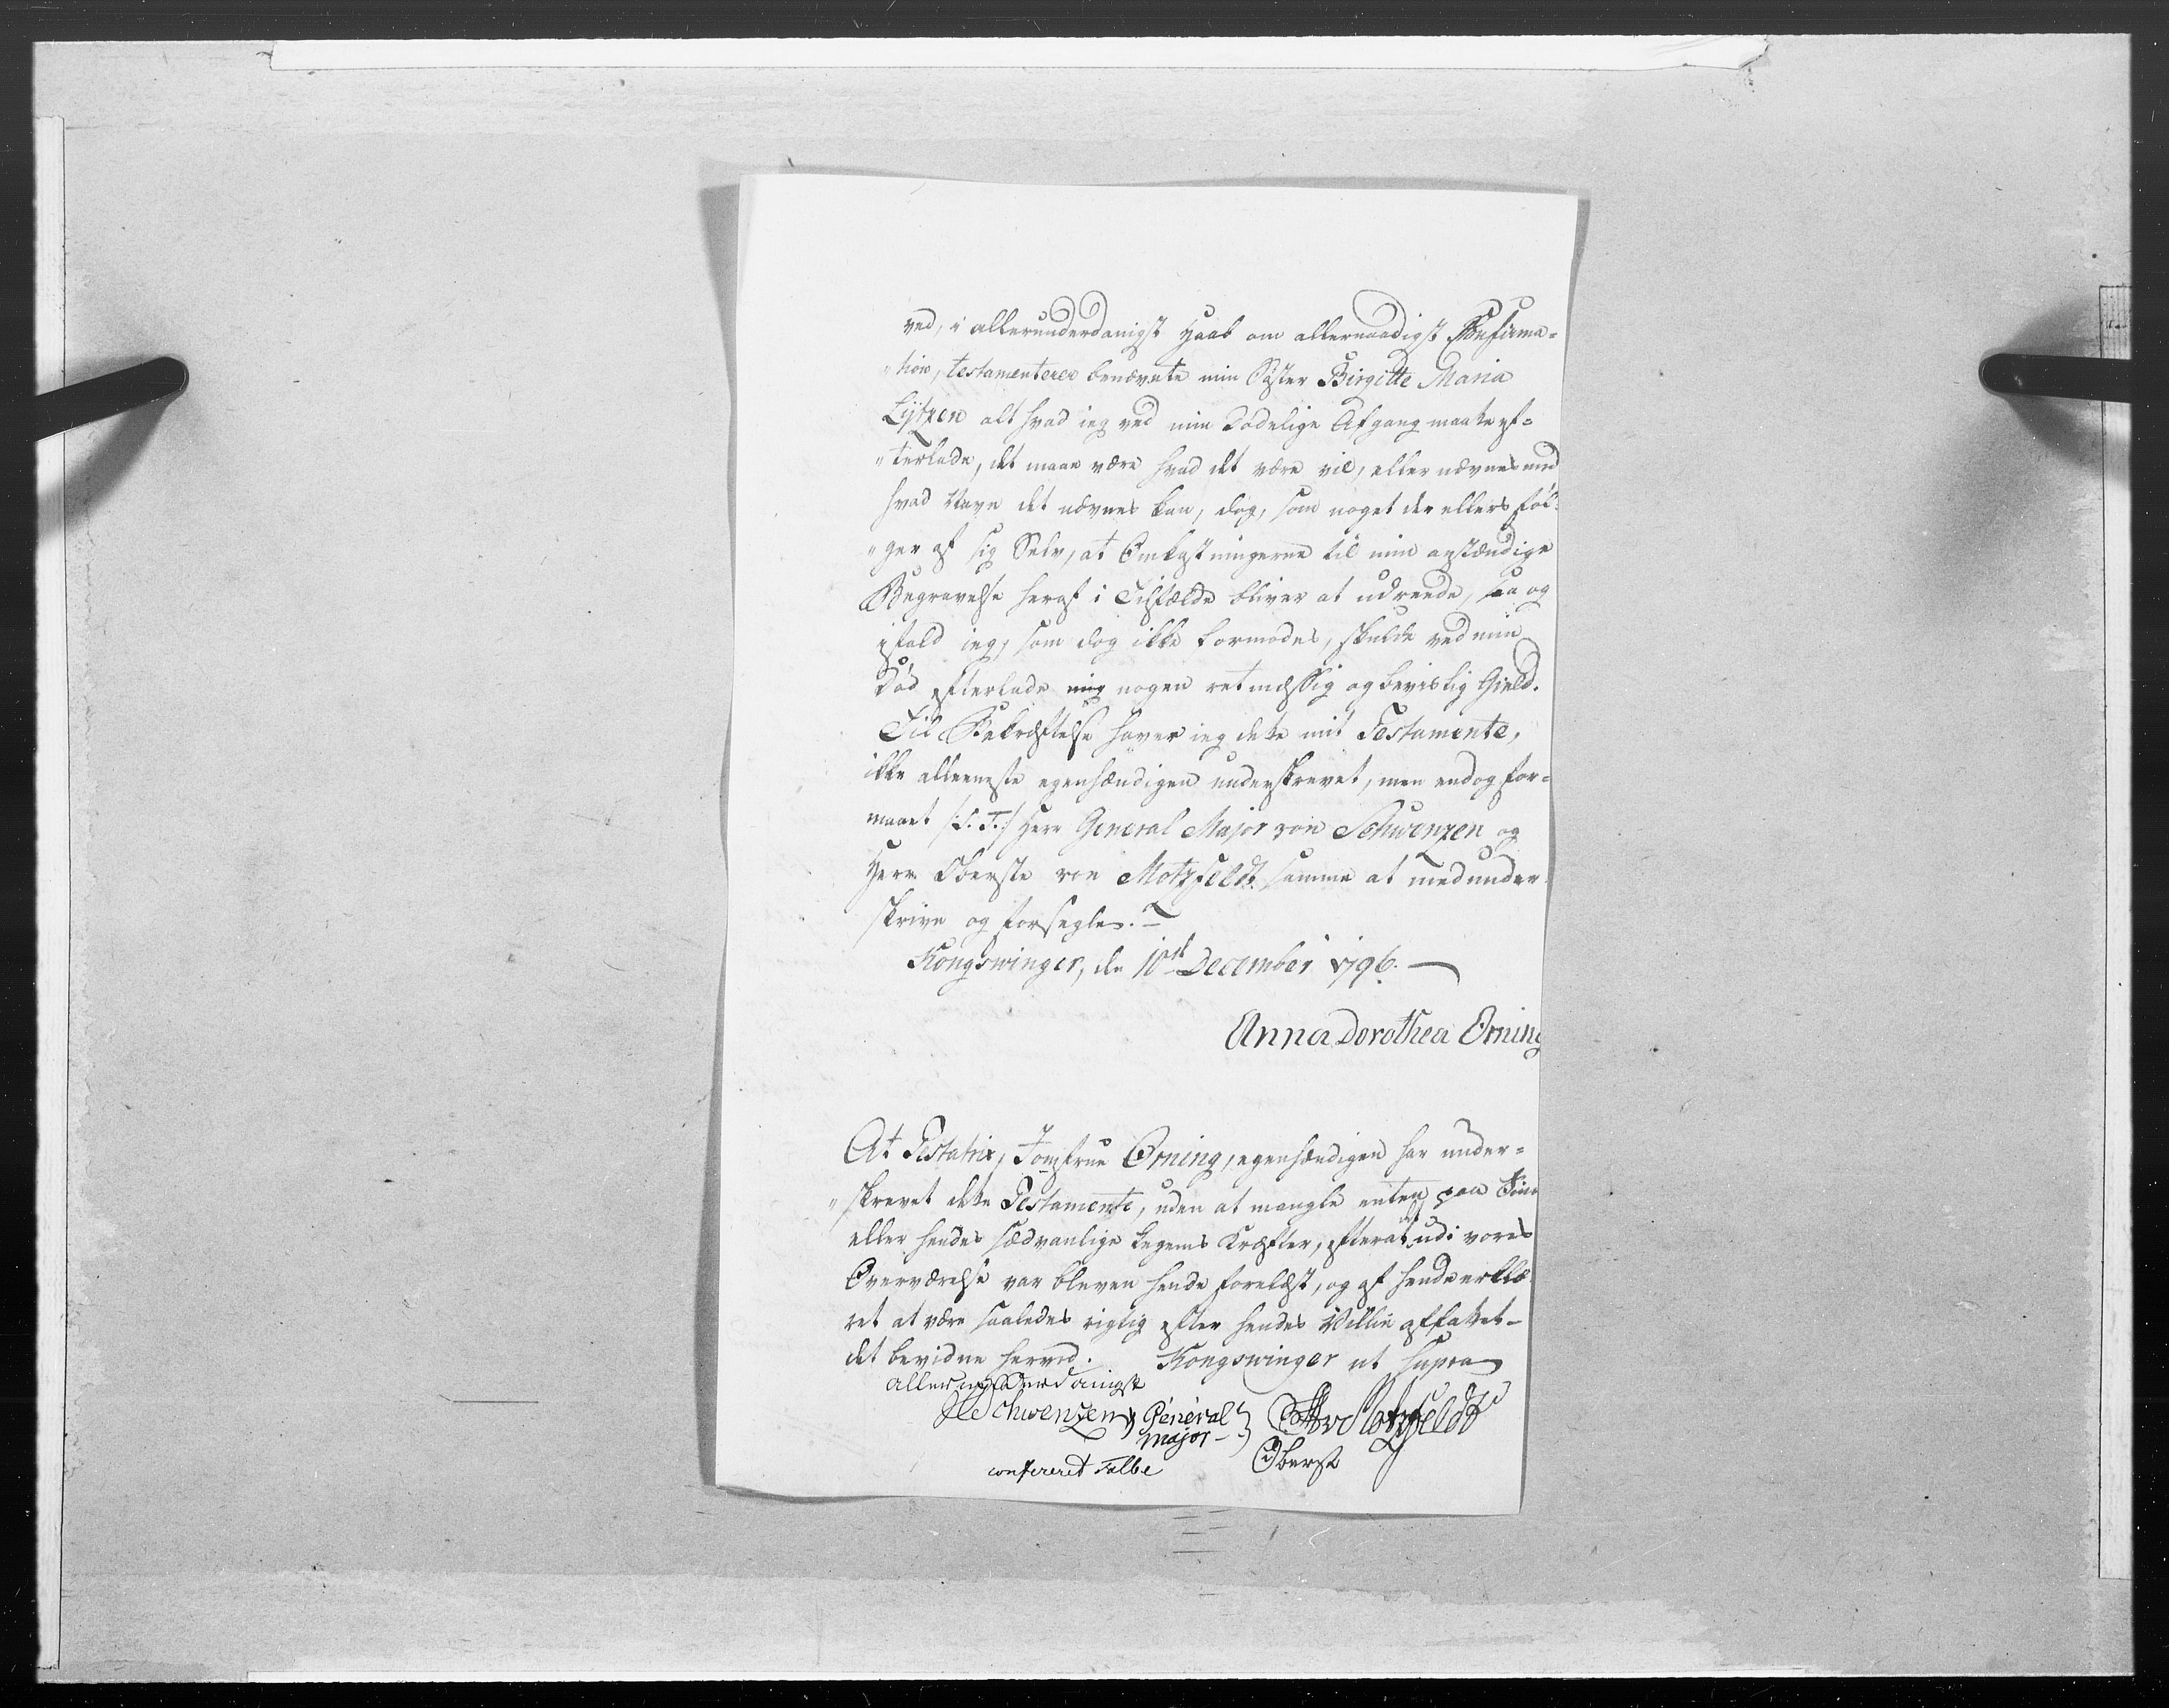 ved, i allerunderdanigst Haab om allernaadigst Confirma=
"tion, testamenterer benævnte min Søster Birgitte Maria
Lÿtzen alt hvad ieg ved min dødelige Afgang maatte ef=
"terlade, det maae være hvad det være vil, eller nævnes med
hvad Navn det nævnes kan, dog, som noget der ellers føl=
"ger af sig Selv, at Omkostningerne til min anstændige
Begravelse heraf i Tilfælde bliver at udreede, saa og
ifald ieg, som dog ikke formodes, skulde ved min
Død efterlade mig nogen retmæssig og bevislig Gield.
Til Bekræftelse haver ieg dette mit Testamente,
ikke alleeneste egenhændigen underskrevet, men endog for=
maaet /:S. T:/ Herr General Major von Schwenzen og
Herr Oberste von Motzfeldt samme at medunder=
skrive og forsegle.
Kongswinger, de 10de December 1796.
Anna Dorothea Örning
At Testatrix, Jomfrue Örning, egenhændigen har under=
"skrevet dette Testamente, uden at mangle enten paa
eller hendes sædvanlige Legems Kræfter, efterat det udi vores
Overværelse var bleven hende forelæst, og af hende erklæ
ret at være saaledes rigtig efter hendes Villie affattet -
det bevidne herved. Kongswinger ut supra
allerunderdanigst
Schwenzen General Major
Motzfeldt
Oberst
confereret Falbe